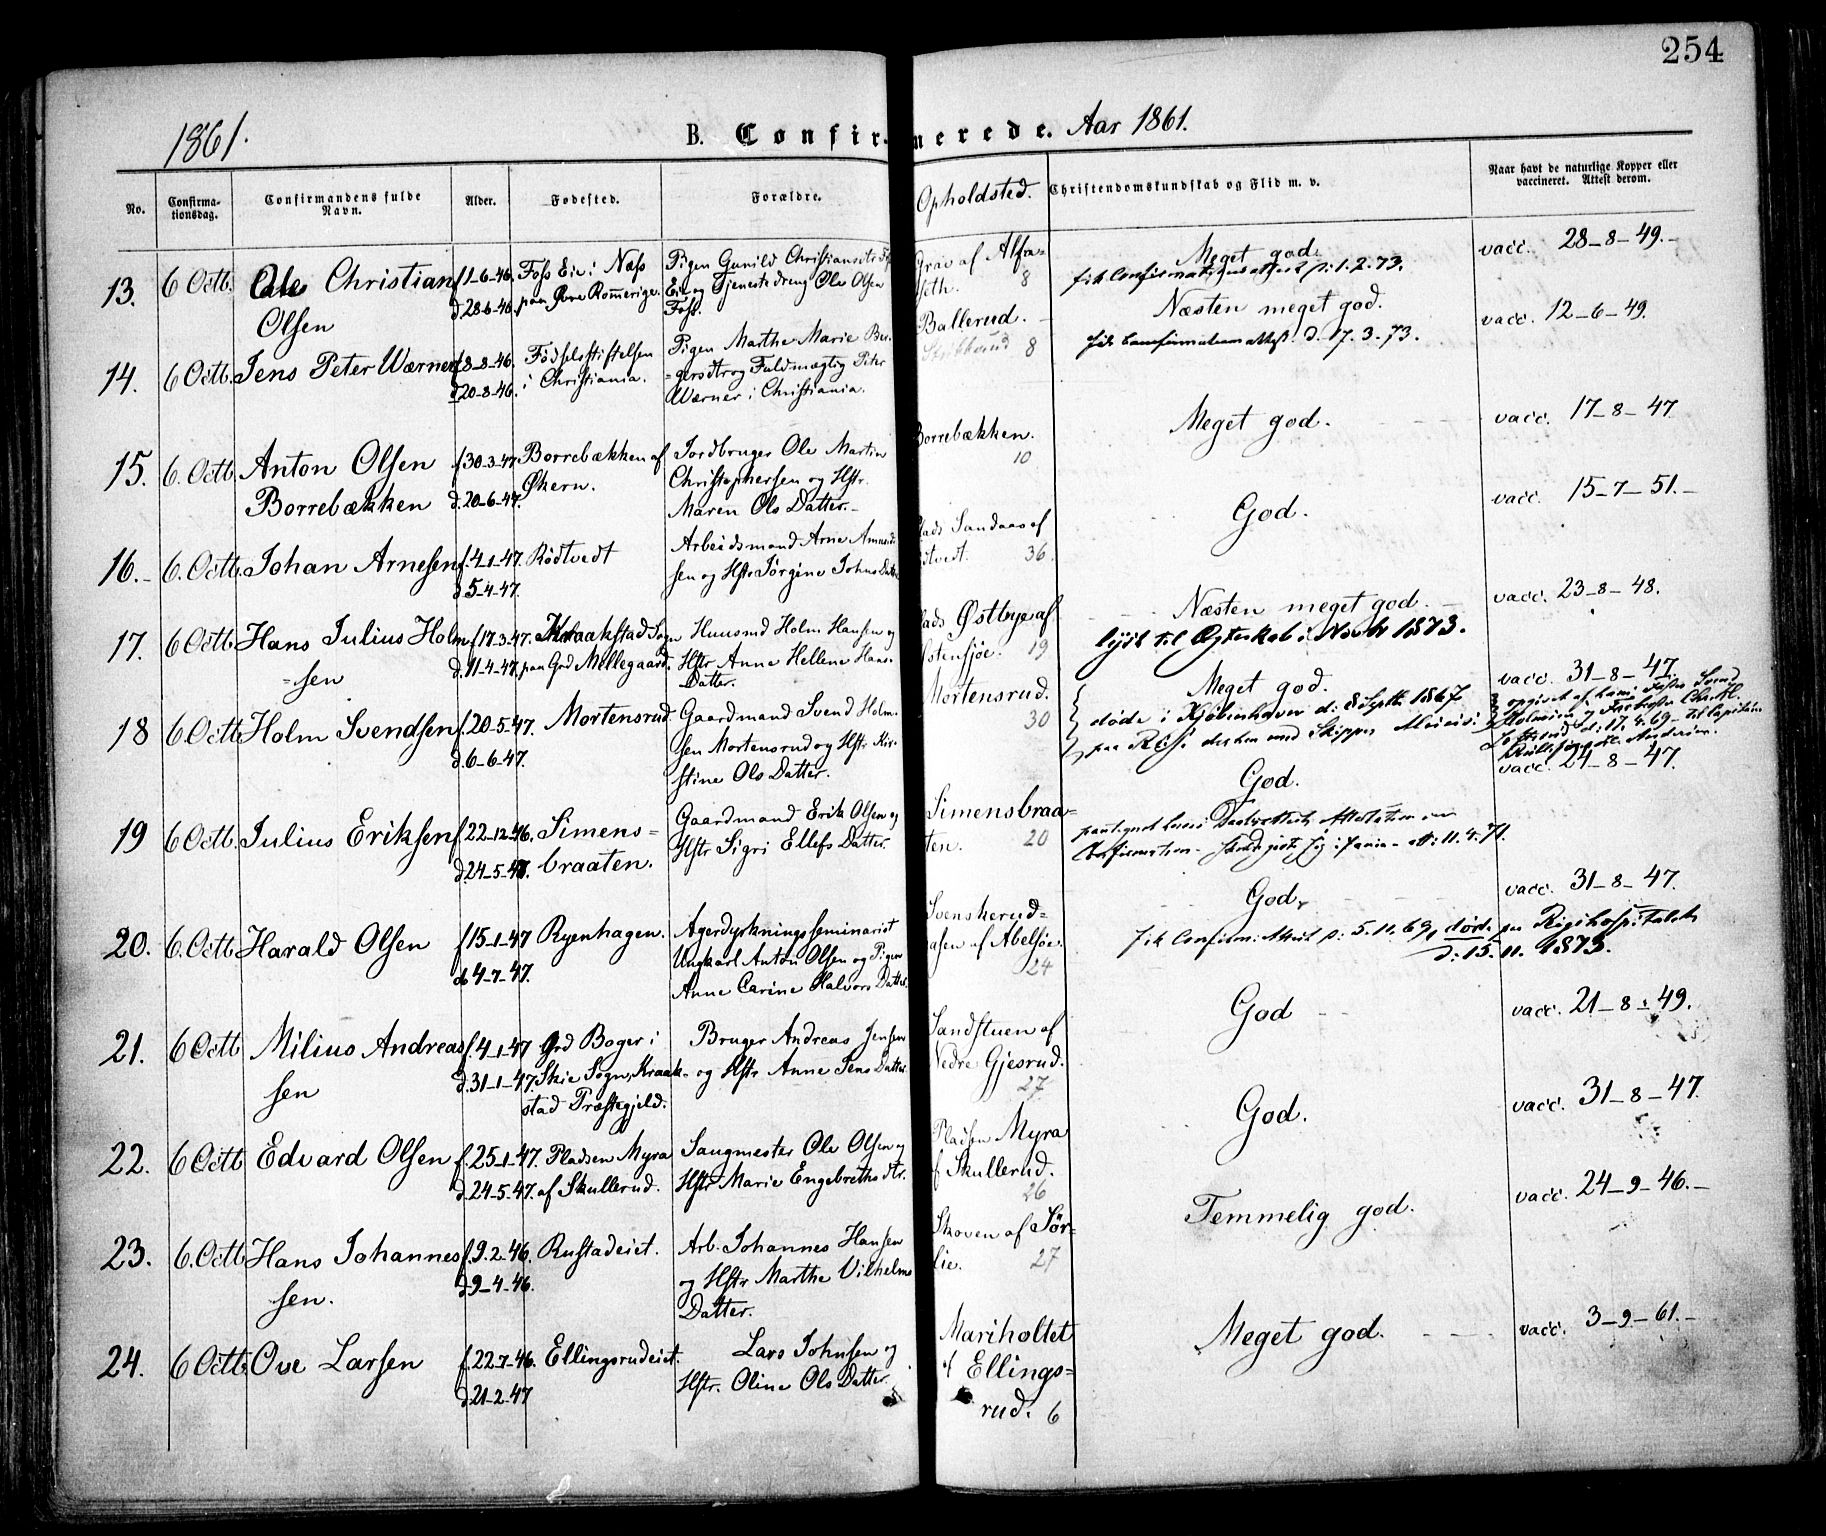 254
1861.
B. Confirmerede. Aar 1861.
No.
Confirma-
tionsdag.
Confirmandens fulde
Navn.
Alder.
Fødested.
Forældre.
Opholdsted.
Christendomskundskab og Flid m. v.
Naar havt de naturlige Kopper eller
vaccineret. Attest derom.
13. 6 Octb. Ole Christian f 1-6-46. Foss Eie i Næss Pigen Gunild Christiansdtr Grav af Alfa- Meget god. vacc. 28-8-49.-
Olsen d 28-6-46. paa Øvre Romerige. Eie og Tjenestedreng Ole Olsen seth. 8 fik Confirmationsattest d: 1.2.73.
Foss.
14. 6 Octb. Jens Peter Wærner f 8-8-46. Fødselsstiftelsen Pigen Marthe Marie Ber- Ballerud. Næsten meget god. vacc. 12-6-49.
d 20-8-46. i Christiania. gersdtr og Fuldmægtig Peter 8 fik Confirmationsattest d. 17.3.73.
Wærner i Christiania.
15. 6. Octb. Anton Olsen f 30-3-47. Borrebækken af Jordbruger Ole Martin Borrebækken. Meget god. vacc. 17-8-47.
Borrebækken d. 20-6-47. Økern. Christophersen og Hstr. 10
Maren Ols Datter.-
16.- 6. Octb. Johan Arnesen f. 4-1-47. Rødtvedt Arbeidsmand Arne Amund- Plads Sandaas af God. vacc. 15-7-51.-
d 5-4-47. sen og Hstr Jørgine Johns Datter 36.
17. 6 Octb. Hans Julius Holm f 17-3-47. Kraakstad Sogn Huusmd Holm Hansen og Plads Østbye af Næsten meget god. vacc. 23-8-48.
=sen d. 11-4-47. paa Grd Mellegaard. Hstr Anne Hellene Hans- Østensjøe. 19 lyst til Ægteskab i Novbr 1873.
Datter.
18 6 Octb. Holm Svendsen f. 20-5-47. Mortensrud. Gaardmand Svend Holm- Mortensrud. Meget god. vacc. 31-8-47.
d. 6-6-47. sen Mortensrud og Hstr Kir- 30 døde i Kjøbenhaven d: 8 Septbr 1867
stine Ols Datter. paa Reise med Skipper
19 6 Octb. Julius Eriksen f. 22-12-46. Simens= Gaardmand Erik Olsen og Simensbraa= God. vacc. 24-8-47.
d. 24-5-47. braaten. Hstr Sigri Ellefs Datter. ten. 20 Attestation om
Confirmation 11.4.71.
20. 6. Octb. Harald Olsen f 15-1-47 Ryenhagen. Agerdyrkningsseminarist Svenskerud= God. vacc. 31-8-47.
db 4-7-47. Ungkarl Anton Olsen og Pigen aasen af Abelsøe. 24 fik Confirm: Attest d: 5.11.69, død paa Rigshospitalet
Anne Carine Halvors Datter. d: 15.11.1873.
21. 6 Octb. Milius Andreas f. 4-1-47 Grd Boger i Bruger Andreas Jensen Sandstuen af God vacc. 21-8-49.
sen d. 31-1-47. Skie Sogn, Kraak- og Hstr Anne Jens Datter. Nedre Gjesrud. 27
stad Præstegjeld.
22. 6 Octb. Edvard Olsen f. 25-1-47. Pladsen Myra Saugmester Ole Olsen og Pladsen Myra God. vacc. 31-8-47.
d. 24-5-47. af Skullerud. Hstr Marie Engebrethsdtr. af Skullerud. 26
23. 6. Octb. Hans Johannes f. 9-2-46. Rustadeiet. Arb. Johannes Hansen Skoven af Sør- Temmelig god. vacc. 24-9-46.-
sen. d 9-4-46. og Hstr Marthe Vilhelms lie. 27
Datter.
24. 6 Octb. Ove Larsen f. 22-7-46. Ellingsrudeiet. Lars Johnsen og Mariholtet Meget god. vacc. 3-9-61.-
d. 21-2-47 Hstr. Oline Ols Datter. af Ellings=
rud. 6